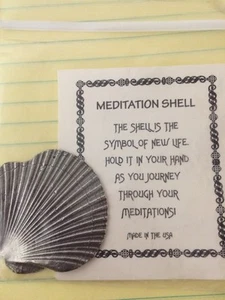 MEDITATION SHELL
THE SHELL IS THE
SYMBOL OF NEW LIFE.
HOLD IT IN YOUR HAND
AS YOU JOURNEY
THROUGH YOUR
MEDITATIONS!
MADE IN THE USA